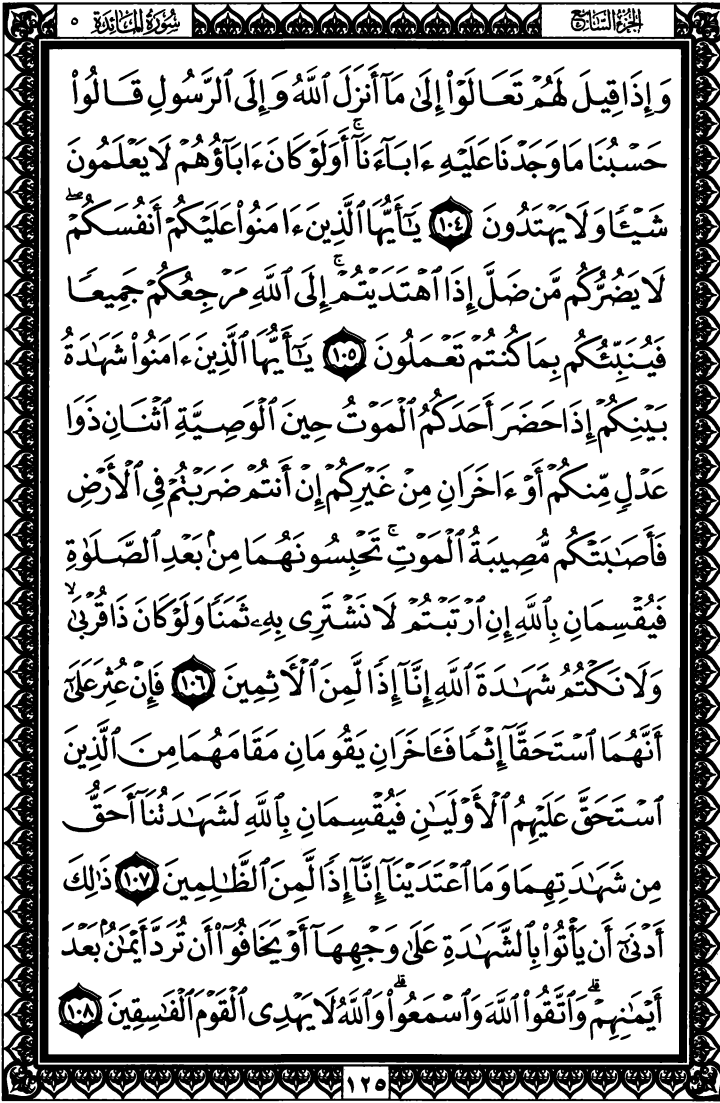 الجزء السابع
سورة المائدة ٥
وَإِذَا قِيلَ لَهُمْ تَعَالَوْا۟ إِلَىٰ مَآ أَنزَلَ ٱللَّهُ وَإِلَى ٱلرَّسُولِ قَالُوا۟
حَسْبُنَا مَا وَجَدْنَا عَلَيْهِ ءَابَآءَنَآ ۚ أَوَلَوْ كَانَ ءَابَآؤُهُمْ لَا يَعْلَمُونَ
شَيْـًٔا وَلَا يَهْتَدُونَ ١٠٤ يَـٰٓأَيُّهَا ٱلَّذِينَ ءَامَنُوا۟ عَلَيْكُمْ أَنفُسَكُمْ ۖ
لَا يَضُرُّكُم مَّن ضَلَّ إِذَا ٱهْتَدَيْتُمْ ۚ إِلَى ٱللَّهِ مَرْجِعُكُمْ جَمِيعًا
فَيُنَبِّئُكُم بِمَا كُنتُمْ تَعْمَلُونَ ١٠٥ يَـٰٓأَيُّهَا ٱلَّذِينَ ءَامَنُوا۟ شَهَـٰدَةُ
بَيْنِكُمْ إِذَا حَضَرَ أَحَدَكُمُ ٱلْمَوْتُ حِينَ ٱلْوَصِيَّةِ ٱثْنَانِ ذَوَا
عَدْلٍ مِّنكُمْ أَوْ ءَاخَرَانِ مِنْ غَيْرِكُمْ إِنْ أَنتُمْ ضَرَبْتُمْ فِى ٱلْأَرْضِ
فَأَصَـٰبَتْكُم مُّصِيبَةُ ٱلْمَوْتِ ۚ تَحْبِسُونَهُمَا مِنۢ بَعْدِ ٱلصَّلَوٰةِ
فَيُقْسِمَانِ بِٱللَّهِ إِنِ ٱرْتَبْتُمْ لَا نَشْتَرِى بِهِۦ ثَمَنًا وَلَوْ كَانَ ذَا قُرْبَىٰ ۙ
وَلَا نَكْتُمُ شَهَـٰدَةَ ٱللَّهِ إِنَّآ إِذًا لَّمِنَ ٱلْـَٔاثِمِينَ ١٠٦ فَإِنْ عُثِرَ عَلَىٰٓ
أَنَّهُمَا ٱسْتَحَقَّآ إِثْمًا فَـَٔاخَرَانِ يَقُومَانِ مَقَامَهُمَا مِنَ ٱلَّذِينَ
ٱسْتَحَقَّ عَلَيْهِمُ ٱلْأَوْلَيَـٰنِ فَيُقْسِمَانِ بِٱللَّهِ لَشَهَـٰدَتُنَآ أَحَقُّ
مِن شَهَـٰدَتِهِمَا وَمَا ٱعْتَدَيْنَآ إِنَّآ إِذًا لَّمِنَ ٱلظَّـٰلِمِينَ ١٠٧ ذَٰلِكَ
أَدْنَىٰٓ أَن يَأْتُوا۟ بِٱلشَّهَـٰدَةِ عَلَىٰ وَجْهِهَآ أَوْ يَخَافُوٓا۟ أَن تُرَدَّ أَيْمَـٰنٌۢ بَعْدَ
أَيْمَـٰنِهِمْ ۗ وَٱتَّقُوا۟ ٱللَّهَ وَٱسْمَعُوا۟ ۗ وَٱللَّهُ لَا يَهْدِى ٱلْقَوْمَ ٱلْفَـٰسِقِينَ ١٠٨
١٢٥